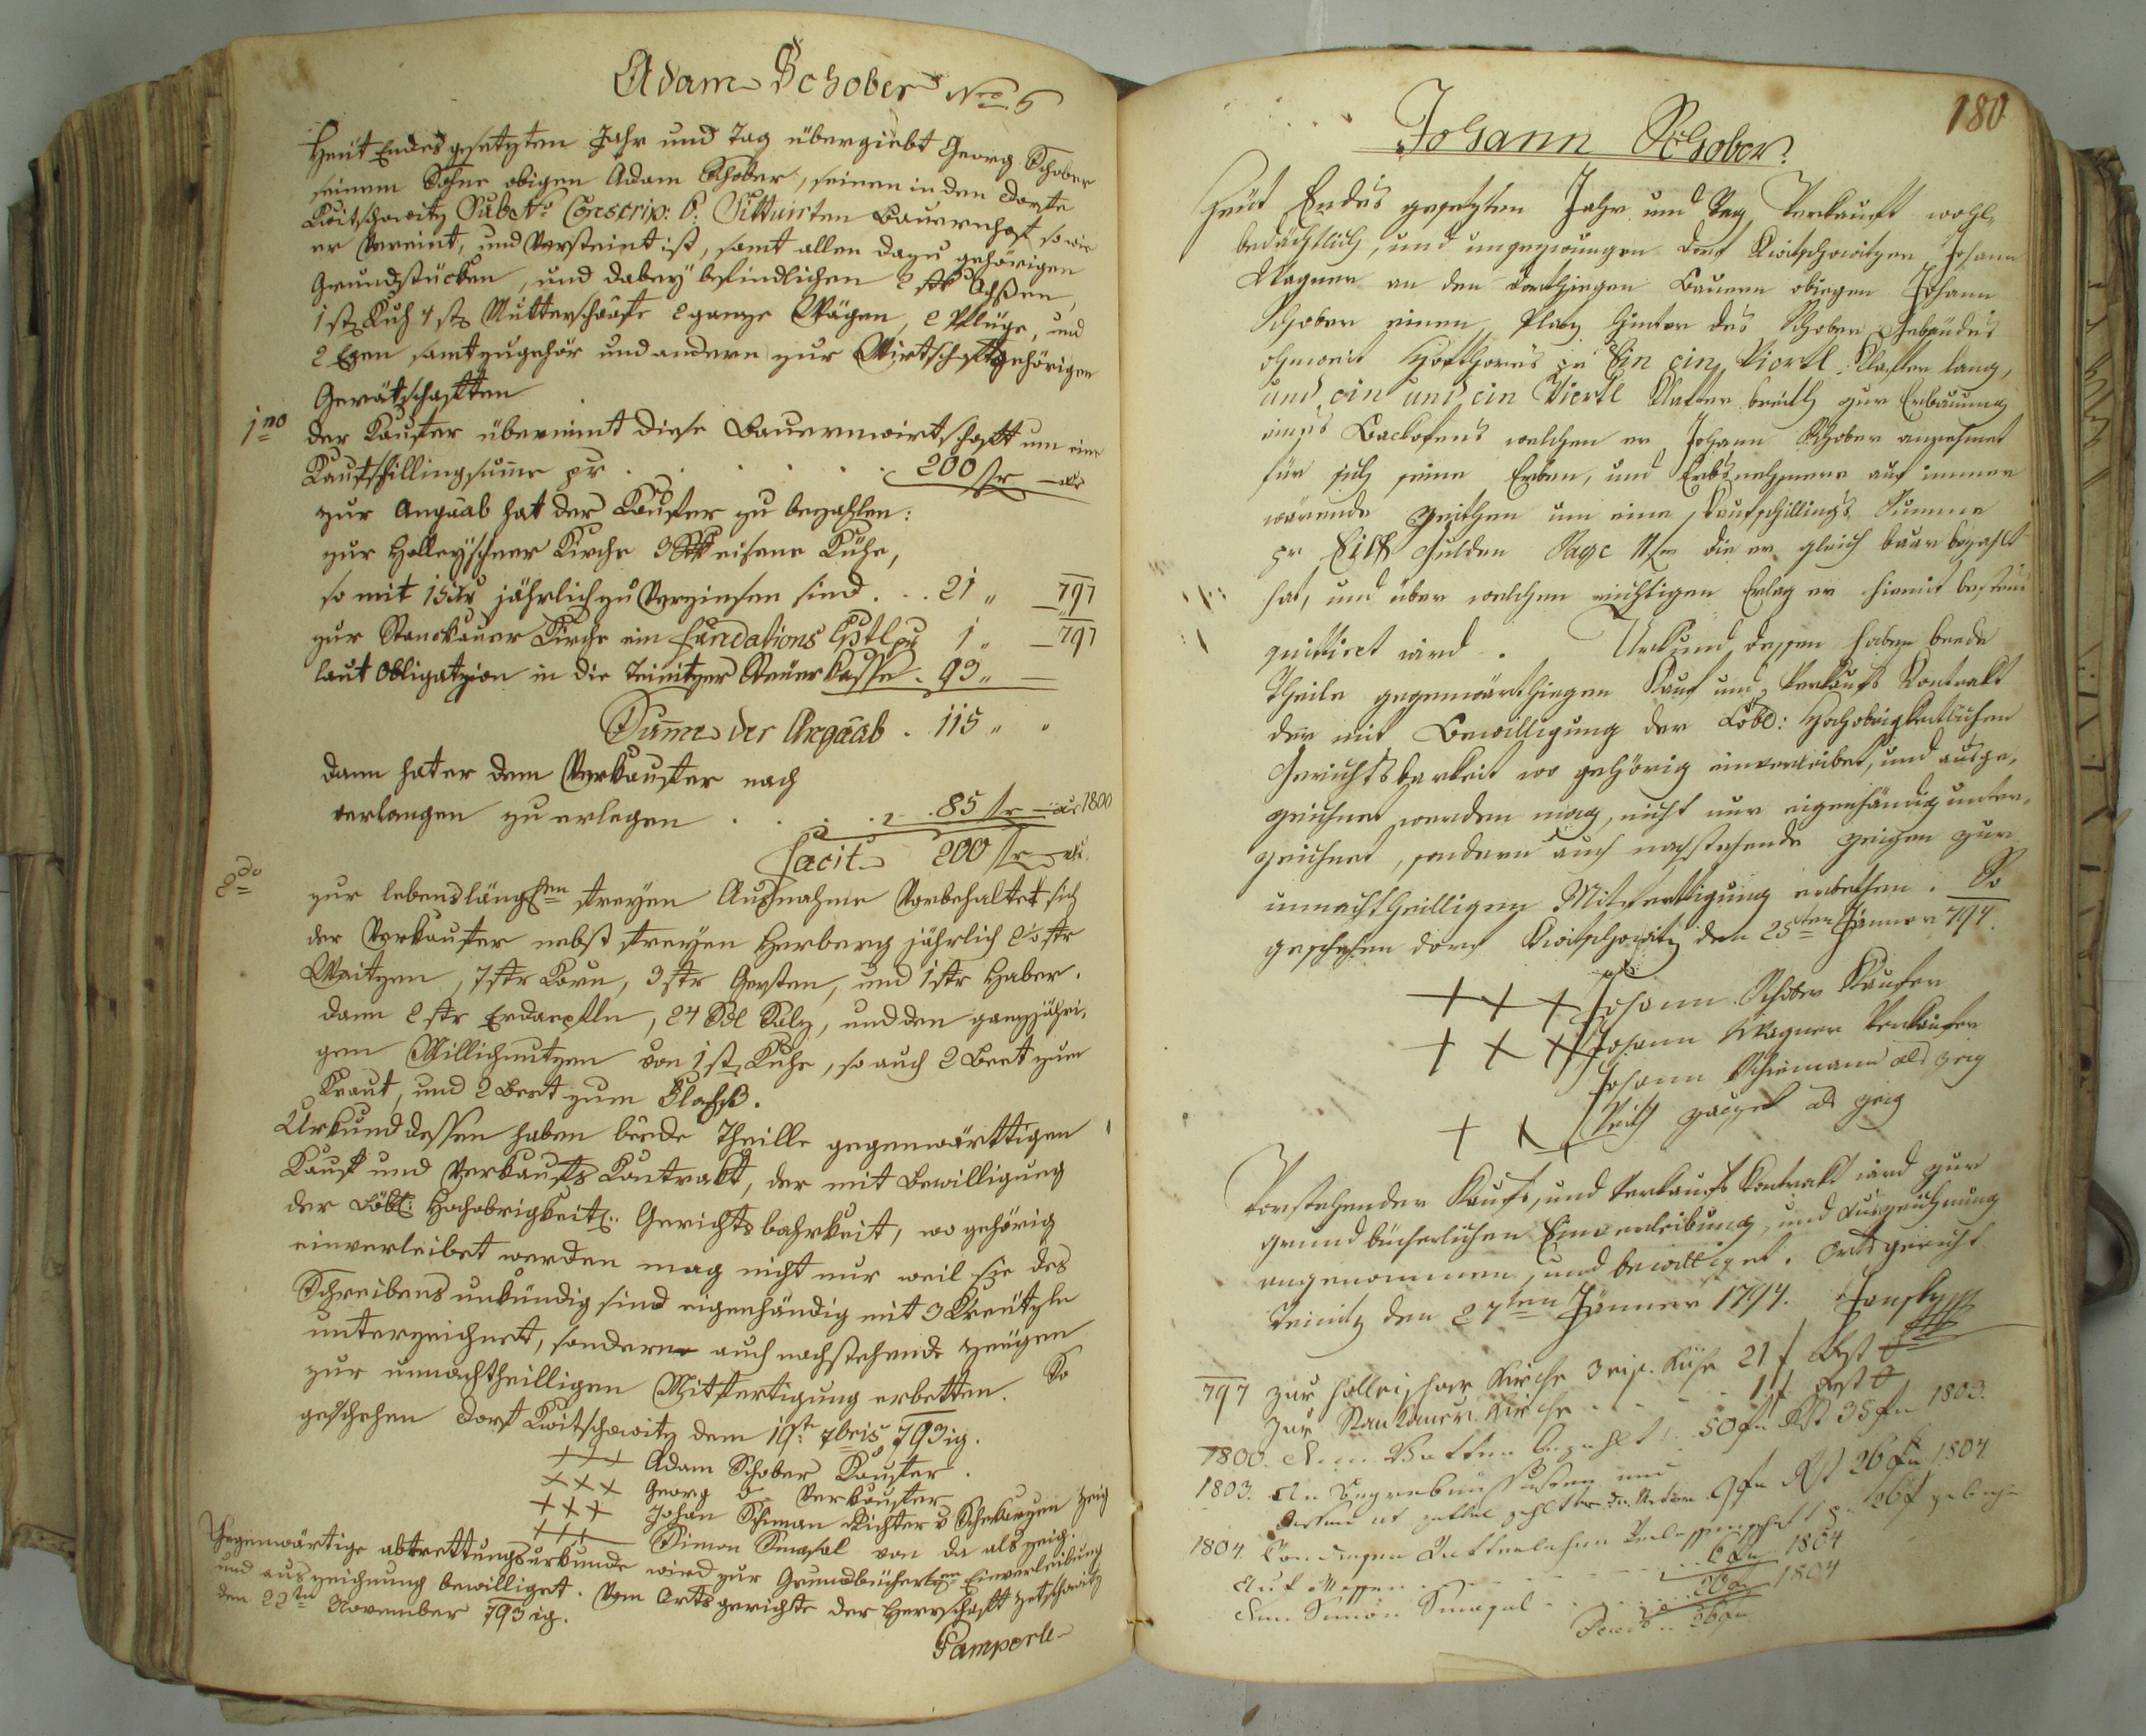 Adam Schober Nro. 6
Heut Endes gesetzten Jahr und Tag übergiebt Georg Schober
seinem Sohne obigen Adam Schober, seinen in den Dorfe
Kwitschowitz Sub No Conscrip: 6. Sittuirten Bauernhof so wie
er Vereint, und Versteint ist, samt allen dazu gehörigen
Grundstücken, und dabey befindlichen 2 stk Ochßen,
1 stk Kuh 4 stk Mutterschaafe 2 ganze Wägen, 2 Pflüge, und
2 Egen samt zugehör und andern zur Wirtschaft gehörigen
Gerätschaften
1mo der Kaufer übernimt diese Bauernwirtschaft um eine
Kaufschillingsum̄e pr . . . . . . 200 fr —
zur Angaab hat der Kaufer zu bezahlen:
zur Holleyschner Kirche 3 Stk eiserne Kühe,
so mit 15 xr jährlich zu Verzinsen sind . . . 21 „ — 797
zur Stanckauer Kirche ein Fundations Cptl pr 1 „ — 797
laut Obligatzion in die Teinitzer Steuer Kasse . 93 „ —
Sum̄e der Angaab . 115 „ „
dann hat er dem Verkaufer nach
verlangen zu erlegen . . . . . 85 fr — 1800
Facit 200 fr —
2do zur lebenslänglichen freyen Ausnahme Vorbehaltet sich
der Verkaufer nebst freyen Herberg jährlich 2 1/2 str
Waitzen, 7 str Korn, 3 str Gersten, und 1 str Haber.
dann 2 str Erdaepfln, 24 Sdl Salz, und den ganzjähri,
gen Millichnutzen von 1 stk Kuhe, so auch 2 Beet zum
Kraut, und 2 Beet zum Flachß.
Urkund dessen haben beede Theille gegenwärttigen
Kauf und Verkaufs Kontrakt, der mit Bewilligung
der Löbl: Hochobrigkeitl: Gerichtsbahrkeit, wo gehörig
einverleibet werden mag nicht nur weil sie des
Schreibens unkündig sind eigenhändig mit 3 Kreützln
unterzeichnet, sondern auch nachstehende Zeugen
zur unnachtheilligen Mitfertigung erbetten. So
geschehen Dorf Kwitschowitz dem 19t: 7bris 793ig.
+++ Adam Schober Kaufer.
+++ Georg d– Verkaufer
+++ Johan Schiman Richter v Zeig
+++ Simon Smasal von da als Zeig.
Gegenwärtige abtrettungsurkunde wird zur Grundbücherlen Einverleibung
und auszeichnung bewilliget. Vom Ortsgerichte der Herrschaft Zetschowitz
den 22tn November 793ig.
Pamperle
180
Johann Schober.
Heut Endes gesetzten Jahr und Tag Verkauft wohl,
bedächtlich, und ungezwungen Dorf Kwitschowitzer Johann
Wagner an den dorthiegen Bauern obiegen Johann
Schober einen Platz hinter des Schober Gebäudes
ohnweit Hofthores pr Ein ein Viertl Klafter lang,
und ein und ein Viertl Klafter breith zur Erbauung
eines Backofens welchen er Johann Schober annehmet
für sich seine Erben, und Erbsnehmere auf immer
wärende Zeithen um eine Kaufschillings Summe
pr Eilf Gulden Sage 11 fr die er gleich baar bezahlt
hat, und über welchen richtigen Erlag er hiemit bestens
quittiret wird . Urkund dessen haben beede
Theile gegenwärthiegen Kauf und Verkaufs Kontrakt
der mit Bewilligung der Löbl: Hochobrigkeitlichen
Gerichtsbarkeit wo gehörig einverleibet, und ausge,
zeichnet werden mag, nicht nur eigenhändig unter,
zeichnet, sondern auch nachstehende Zeugen zur
unnachtheilligen Mitfertigung erbethen. So
geschehen Dorf Kwitschowitz den 25ten Jänner 794.
+ + + Johann Schober Käufer
+ + + Johann Wagner Verkäufer
Johann Schiemann als Zeig
+ + + Veith als Zeig
Vorstehender Kaufs, und Verkaufs Kontrakt wird zur
grundbücherlichen Einverleibung, und Auszeichnung
angenommen, und bewilliget. Ortsgericht
Teinitz den 27ten Jänner 1794. Jansky
797 zur Holleischner Kirche 3 eis. Kühe 21 f Rst 0
Zur Stankauer Kirche . . . . 1 f Rst 0
1800. Dem Vatter bezahlt . 50 fr Rst 35 fr 1803.
1803. An Begräbnuß und
9 fr Rst 26 fr 1804
1804. 26 f
Auf Messen . . . . . . 6 fr 1804
dem Simon Smasal . . . . 20 fr 1804
26 fr